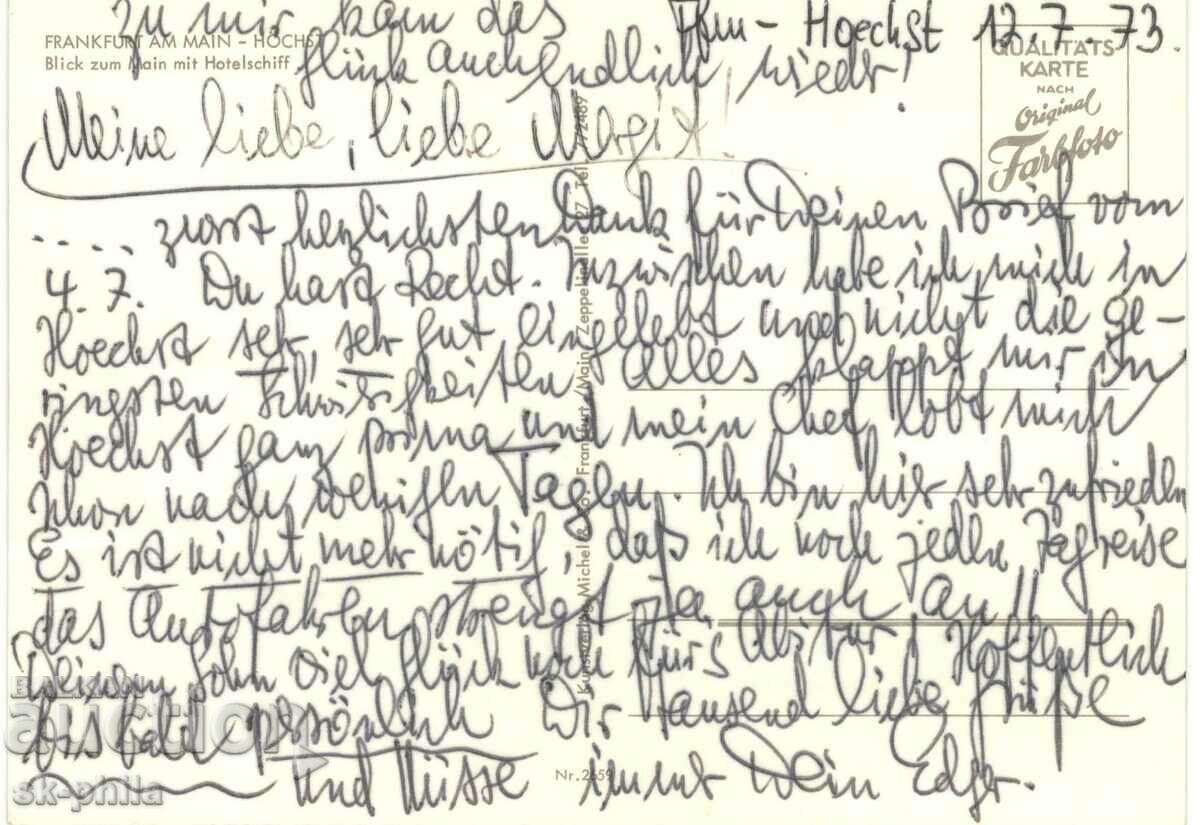 zu mir kam das Ffm - Hoechst 12.7.73
FRANKFURT AM MAIN – HÖCHST
Blick zum Main mit Hotelschiff
Glück auch endlich wieder!
QUALITÄTS-
KARTE
NACH
Original
Farbfoto
Meine liebe, liebe Margit!
..... zuerst herzlichsten Dank für Deinen Brief vom
4.7. Du hast Recht. Inzwischen habe ich mich in
Hoechst sehr, sehr gut eingelebt und nicht die ge-
ringsten Schwierigkeiten alles klappt mir in
Hoechst ganz prima und mein Chef lobt mich
schon nach wenigen Tagen. Ich bin hier sehr zufrieden
Es ist nicht mehr nötig, daß ich noch jeden Tag reise
das Autofahren strengt ja auch an!!
Deinem Sohn viel Glück noch fürs Abitur! Hoffentlich
bis bald persönlich Dir tausend liebe Grüße
und Küsse immer Dein Edgar.
Kunstverlag Michel & Co., Frankfurt/Main, Zeppelinallee 27 Tel. 772489
Nr. 2659
BALKAN
auction
sk-phila